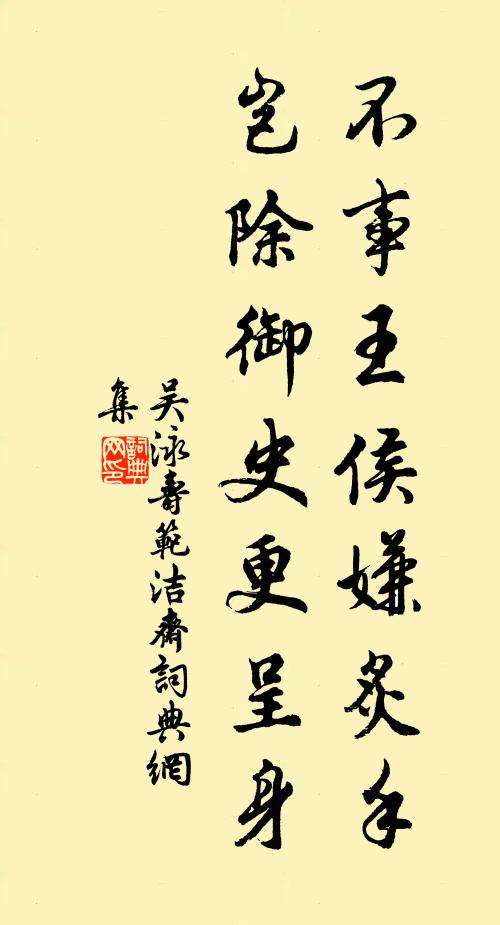 不事王侯嫌炙手
豈除御史更呈身
吴泳壽範洁齋詞典網
集
詞典网印